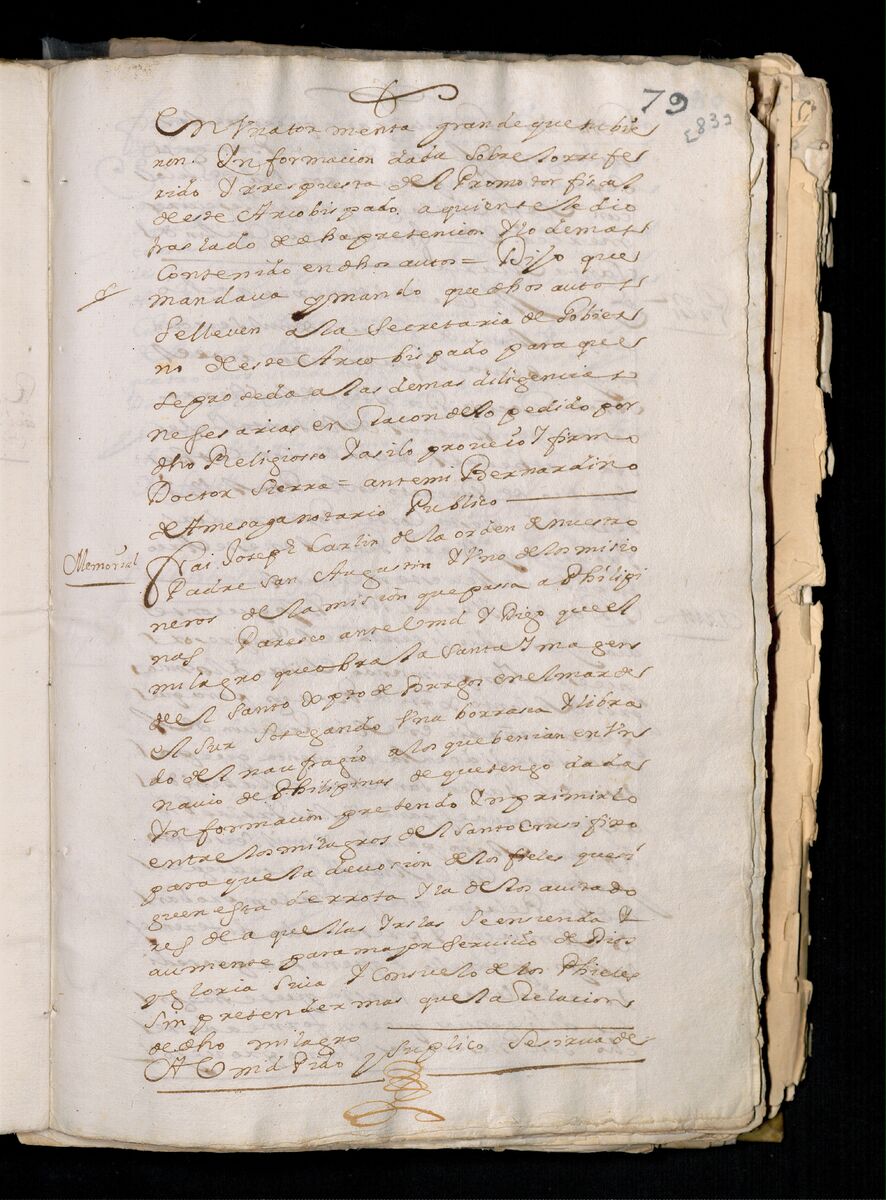 79
[83]
En Una tormenta grande que tubie
ron Ynformacion dada sobre lo rrefe
rido Y rrespuesta del Promotor fiscal
de este Arcobispado a quien se le dio
traslado de dha pretencion Y lo demas
Contenido en dhos autos = Dijo que
mandava y mando que dhos autos
Se lleven a la Secretaria de Gobier
no de este Arcobispado para que
se proseda a las demas diligencias
nesesarias en Racon de lo pedido por
dho Religiosso Y asi lo proveio Y firmo
Doctor Sierra = ante mi Bernardino
de Amesaga notario Publico
Memorial
Frai Joseph Carlin de la orden de nuestro
Padre San Augustin Y Uno de los misio
neros de la mision que passa a Philipi
nas Paresco ante Vmd Y Digo que el
milagro que obra la Santa Ymagen
del Santo xpto de Burgos en el mar de
el Sur Sosegando Una borrasca Y libra
do del naufragio a los que benian en Un
navio de Philipinas de que tengo dada
Ynformacion pretendo Ynprimirlo
entre los milagros del Santo Crusifixo
para que la devosion de los fieles que si
guen esta derrota Y la de los avitado
res de aquellas Yslas Se ensienda Y
aumente para major Servicio de Dios
y gloria Suia Y Consuelo de los Phieles
Sin pretender mas que la Relacion
de dho milagro
A Vmd Pido y Suplico Se sirva de